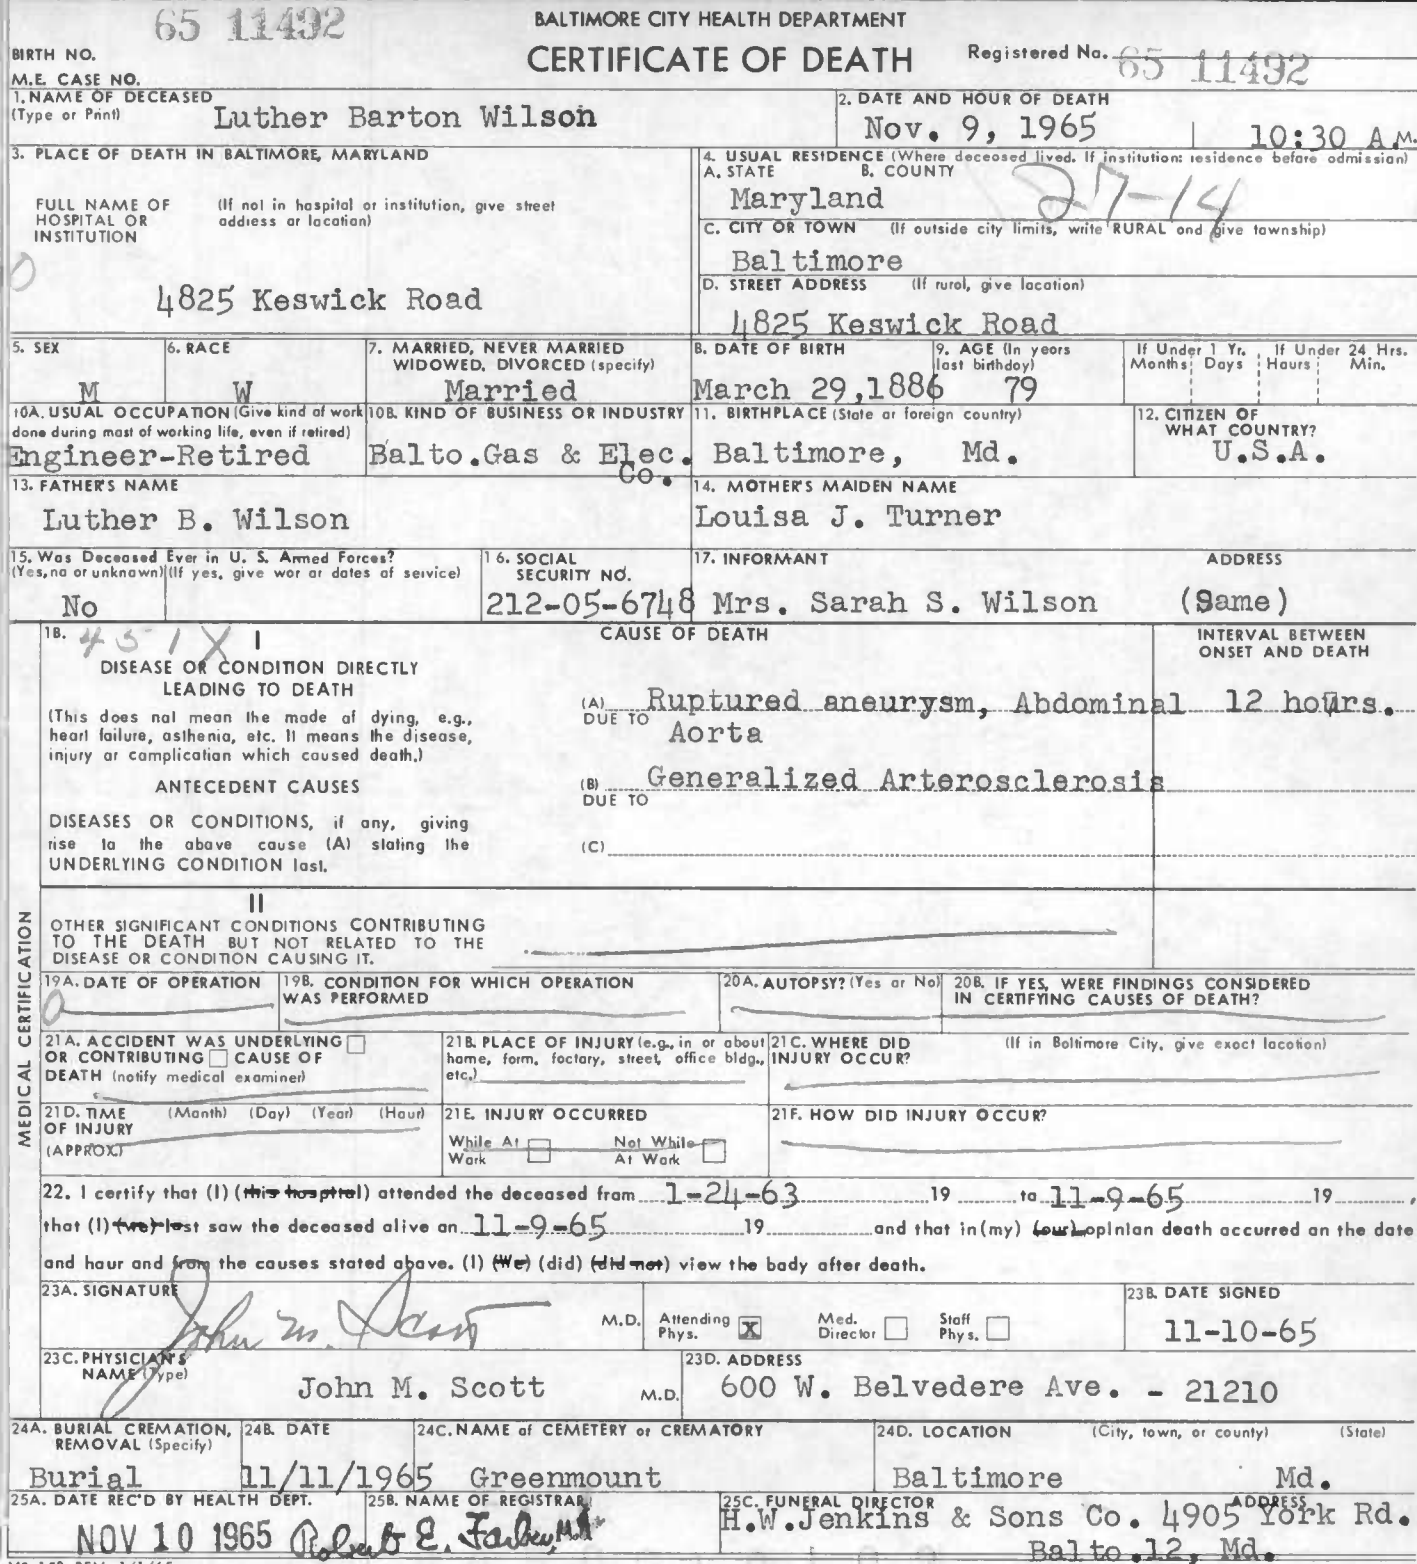 65 11492
BALTIMORE CITY HEALTH DEPARTMENT
BIRTH NO.
CERTIFICATE OF DEATH
Registered No. 65 11492
M.E. CASE NO.
1. NAME OF DECEASED
(Type or Print)
Luther Barton Wilson
2. DATE AND HOUR OF DEATH
Nov. 9, 1965 10:30 A.M.
3. PLACE OF DEATH IN BALTIMORE, MARYLAND
FULL NAME OF HOSPITAL OR INSTITUTION
(If not in hospital or institution, give street address or location)
0
4825 Keswick Road
4. USUAL RESIDENCE (Where deceased lived. If institution: residence before admission)
A. STATE B. COUNTY
Maryland 27-14
C. CITY OR TOWN (If outside city limits, write RURAL and give township)
Baltimore
D. STREET ADDRESS (If rural, give location)
4825 Keswick Road
5. SEX
M
6. RACE
W
7. MARRIED, NEVER MARRIED
WIDOWED, DIVORCED (specify)
Married
8. DATE OF BIRTH
March 29,1886
9. AGE (In years
last birthday)
79
If Under 1 Yr. If Under 24 Hrs.
Months Days Hours Min.
10A. USUAL OCCUPATION (Give kind of work
done during most of working life, even if retired)
Engineer-Retired
10B. KIND OF BUSINESS OR INDUSTRY
Balto.Gas & Elec.
Co.
11. BIRTHPLACE (State or foreign country)
Baltimore, Md.
12. CITIZEN OF
WHAT COUNTRY?
U.S.A.
13. FATHER'S NAME
Luther B. Wilson
14. MOTHER'S MAIDEN NAME
Louisa J. Turner
15. Was Deceased Ever in U. S. Armed Forces?
(Yes, no or unknown) (If yes, give war or dates of service)
No
16. SOCIAL
SECURITY NO.
212-05-6748
17. INFORMANT ADDRESS
Mrs. Sarah S. Wilson (Same)
18. 451X I
CAUSE OF DEATH
INTERVAL BETWEEN
ONSET AND DEATH
DISEASE OR CONDITION DIRECTLY
LEADING TO DEATH
(This does not mean the mode of dying, e.g.,
heart failure, asthenia, etc. It means the disease,
injury or complication which caused death.)
(A) Ruptured aneurysm, Abdominal 12 hours.
DUE TO Aorta
ANTECEDENT CAUSES
(B) Generalized Arterosclerosis
DUE TO
DISEASES OR CONDITIONS, if any, giving
rise to the above cause (A) stating the
UNDERLYING CONDITION last.
(C)
II
OTHER SIGNIFICANT CONDITIONS CONTRIBUTING
TO THE DEATH BUT NOT RELATED TO THE
DISEASE OR CONDITION CAUSING IT.
MEDICAL CERTIFICATION
19A. DATE OF OPERATION
0
19B. CONDITION FOR WHICH OPERATION
WAS PERFORMED
20A. AUTOPSY? (Yes or No)
20B. IF YES, WERE FINDINGS CONSIDERED
IN CERTIFYING CAUSES OF DEATH?
21A. ACCIDENT WAS UNDERLYING
OR CONTRIBUTING CAUSE OF
DEATH (notify medical examiner)
21B. PLACE OF INJURY (e.g., in or about
home, farm, factory, street, office bldg.,
etc.)
21C. WHERE DID (If in Baltimore City, give exact location)
INJURY OCCUR?
21D. TIME (Month) (Day) (Year) (Hour)
OF INJURY
(APPROX.)
21E. INJURY OCCURRED
While At Work
Not While At Work
21F. HOW DID INJURY OCCUR?
22. I certify that (I) (this hospital) attended the deceased from 1-24-63 19 to 11-9-65 19 ,
that (I) (we) last saw the deceased alive on 11-9-65 19 and that in (my) (our) opinion death occurred on the date
and hour and from the causes stated above. (I) (We) (did) (did not) view the body after death.
23A. SIGNATURE
John M. Scott
M.D.
Attending Phys. X
Med. Director
Staff Phys.
23B. DATE SIGNED
11-10-65
23C. PHYSICIAN'S
NAME (Type)
John M. Scott M.D.
23D. ADDRESS
600 W. Belvedere Ave. - 21210
24A. BURIAL CREMATION,
REMOVAL (Specify)
Burial
24B. DATE
11/11/1965
24C. NAME of CEMETERY or CREMATORY
Greenmount
24D. LOCATION (City, town, or county) (State)
Baltimore Md.
25A. DATE REC'D BY HEALTH DEPT.
NOV 10 1965
25B. NAME OF REGISTRAR
Robert E. Farber, M.D.
25C. FUNERAL DIRECTOR ADDRESS
H.W.Jenkins & Sons Co. 4905 York Rd.
Balto.12, Md.